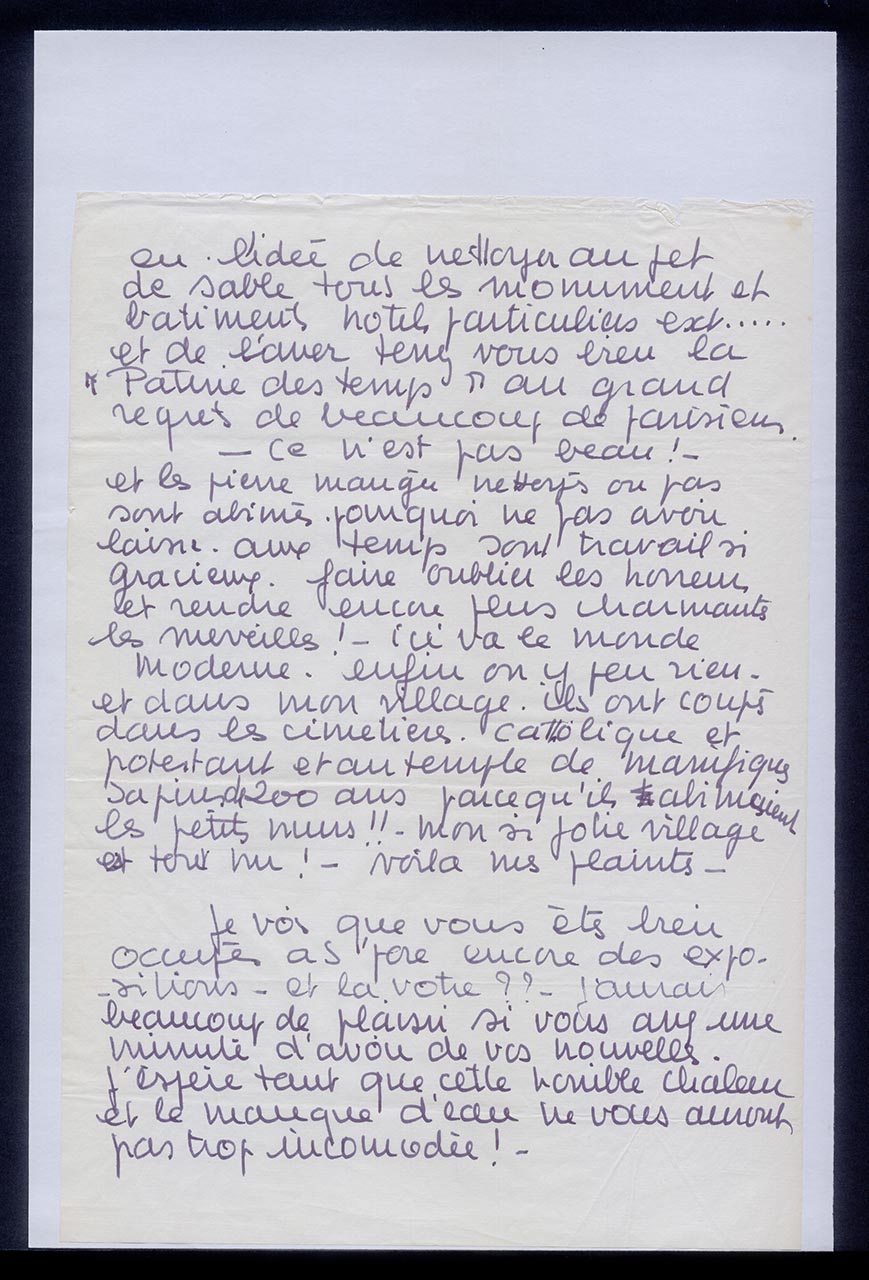 eu l'ideé de nettoyer au jet
de sable tous les monument et
batiments hotels particuliers ext.....
et de l'aver tenez vous bien la
" Patine des temps " au grand
regret de beaucoup de parisiens.
— Ce n'est pas beau! –
et les pierre mangée nettoyés ou pas
sont abimés. pourquoi ne pas avoir
laissé. aux temp sont travail si
gracieux. faire oublier les horreurs
et rendre encore plus charmants
les merveilles! – ici va le monde
moderne. enfin on y peu rien –
et dans mon village. ils ont coupés
dans les cimetieres. cattolique et
potestant et au temple de manifiques
sapins de 200 ans parcequ'ils abimaient
les petits murs!! – mon si jolie village
est tout nu! – voila mes plaints –
Je vois que vous êtes bien
occupés a S'pore encore des expo-
-sitions – et la votre ?? – j'aurais
beaucoup de plaisir si vous avez une
minute d'avoir de vos nouvelles.
J'espère tant que cette horrible chaleur
et le manque d'eau ne vous auront
pas trop incomodée! –